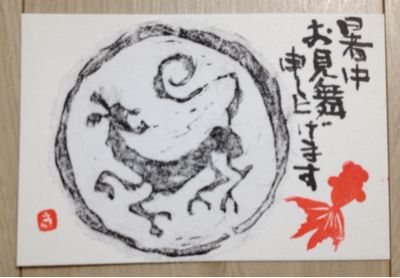 暑中
お見舞
申し上げます
き